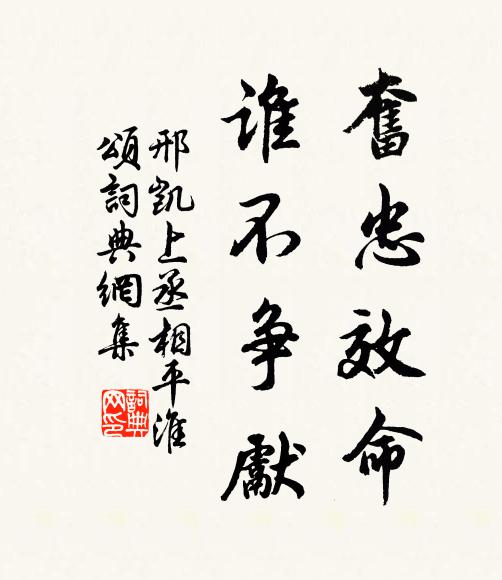 奮忠效命
誰不争獻
邢凱上丞相平淮
頌詞典網集
詞典
网印